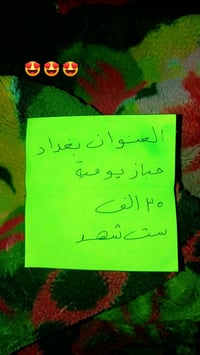 😍😍😍
العنوان بغداد
خباز يومية
٣٠ الف
ست شهد